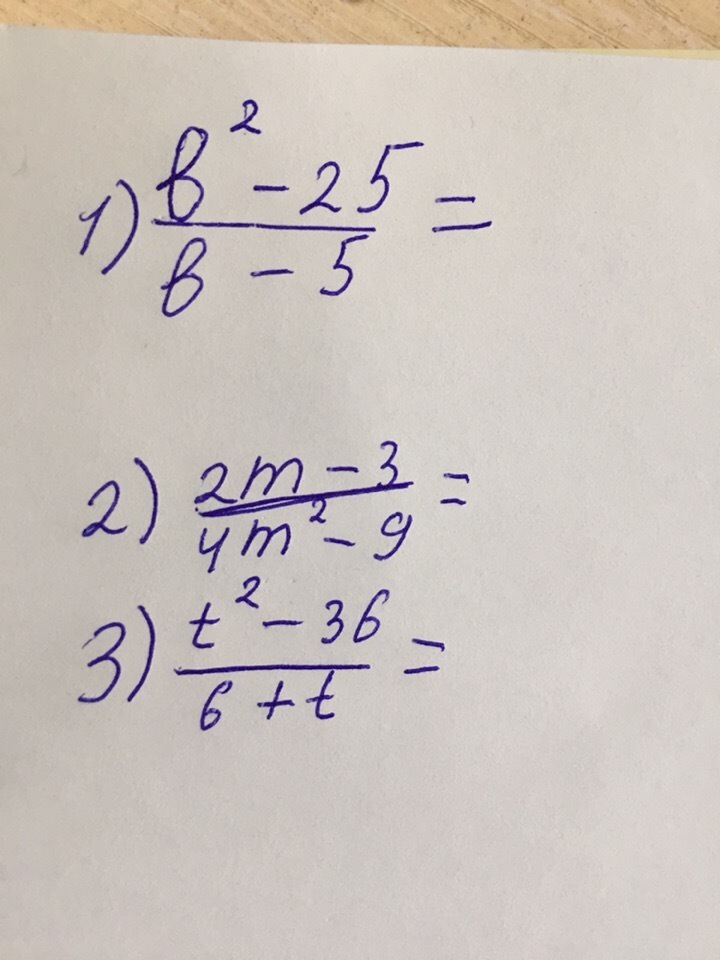 1) b² - 25 =
b - 5
2) 2m - 3 =
4m² - 9
3) t² - 36 =
6 + t